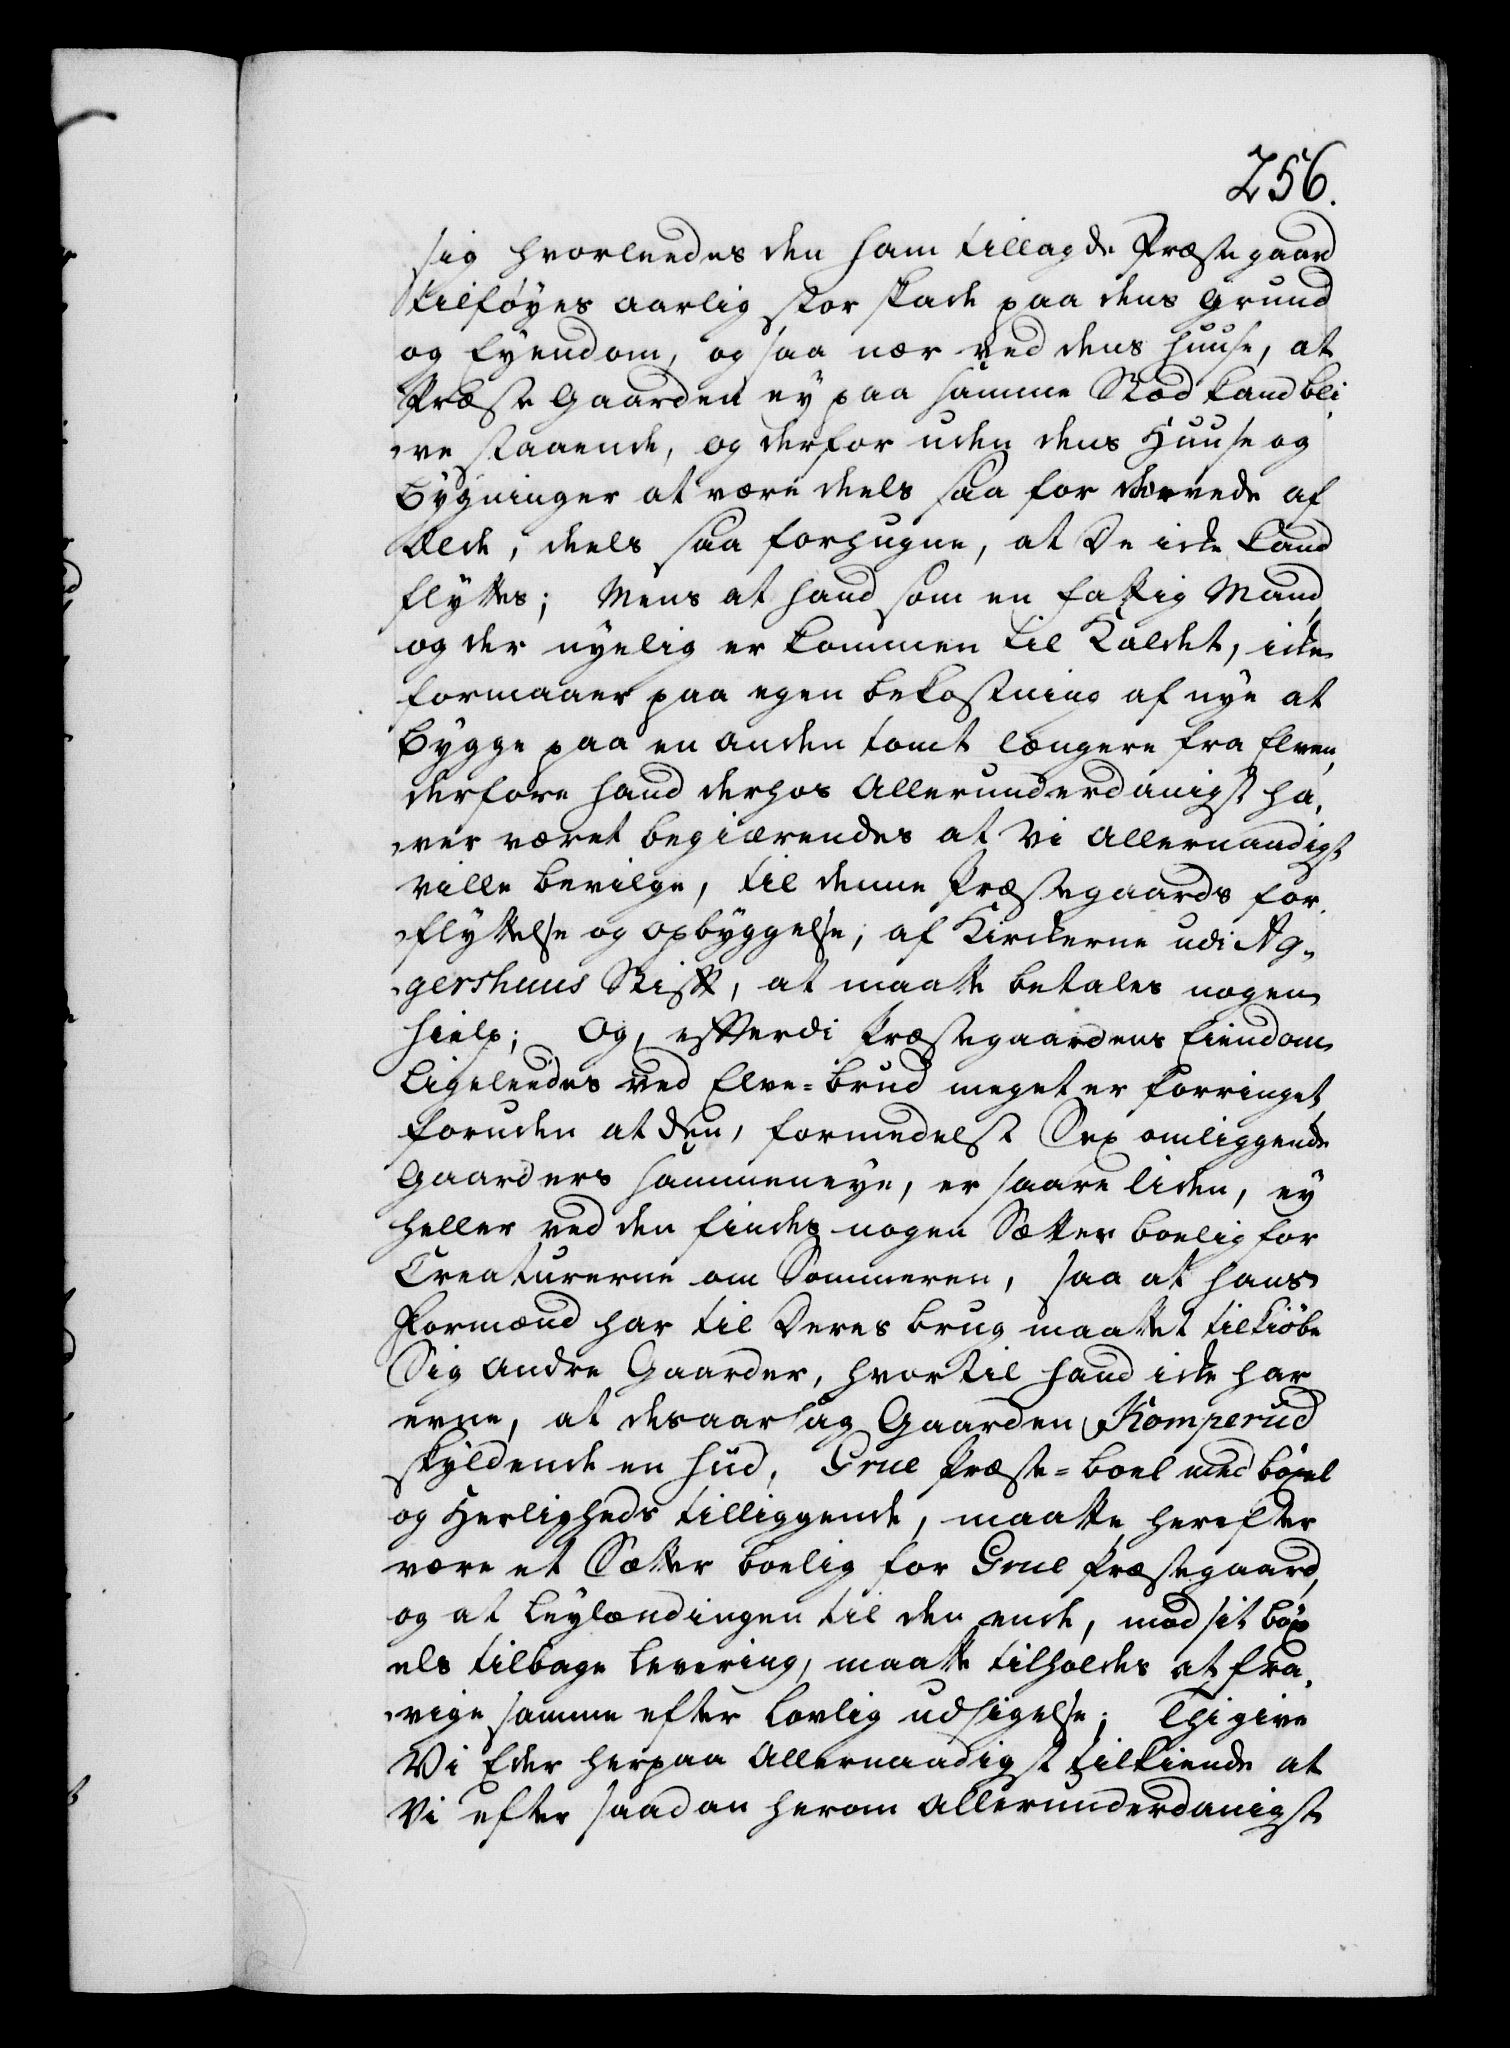 256.
sig hvorleedes den ham tillagde Præstegaard
tilføyes aarlig stor skade paa dens Grund
og Eyendom, og saa nær ved dens Huuse, at
Præste Gaarden ey paa samme Stæd kand bli
ve staaende, og derfor uden dens Huuse og
Bygninger at være deels saa for raadnede af
Ælde, deels saa forhugne, at De icke kand
flyttes; Mens at hand som en fattig Mand,
og der nyelig er kommen til Kaldet, icke
formaaer paa egen Bekostning af nye at
bygge paa en anden tomt længere fra Elven,
derfore hand derhos Allerunderdanigst ha,
ver været begiærendes at Vi Allernaadigst
ville bevilge, til denne Præstegaards for,
flyttelse og opbyggelse, af Kirckerne udi Ag,
gershuus Stift, at maatte betales nogen
Hielp; Og, efterdi Præstegaardens Eiendom
Ligeleedes ved Elve=brud meget er forringet,
foruden at den, formedelst Sex omliggende
Gaarders sammeneye, er saare liden, ey
heller ved den findes nogen Sætter boelig for
Creaturerne om Sommeren, saa at hans
Formænd har til Deres brug maattet tilkiöbe
Sig andre Gaarder, hvortil hand icke har
evne, at desaarsag Gaarden Komperud
skyldende en Hud, Grue Præste=boel med böxel
og Herligheds tilliggende, maatte herefter
være et Sætter boelig for Grue Præstegaard,
og at Leylændingen til den ende, mod sit böx
els tilbage levering, maatte tilholdes at fra,
vige samme efter lovlig udsigelse; Thi give
Vi Eder herpaa Allernaadigst tilkiende at
Vi efter saadan herom allerunderdanigst